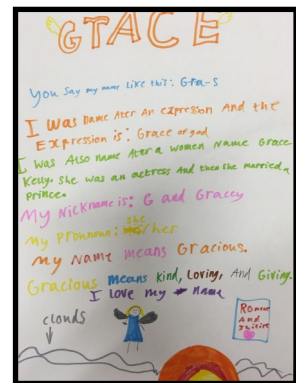 GTACE
You say my name Like this: Gra-S
I was name Ater An expression And the
Expression is: Grace of god
I was Also name Ater a women Name Grace
Kelly. She was an actress And then she married a
Prince.
My Nickname is: G and Gracey
my pronoun: she/her
my Name means Gracious.
Gracious means Kind, Loving, And Giving.
I love my Name
clouds
Romeo
And